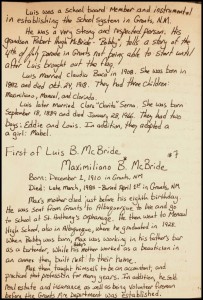 Luis was a School Board Member and instrumental
in establishing the School system in Grants, N.M.
He was a very strong and respected person. His
grandson Robert Hugh McBride - "Bobby", tells a story of the
4th of July parade in Grants not being able to start until
after Luis brought out the flag.
Luis Married Claudia Baca in 1908. She was born in
1882 and died Oct. 24, 1918. They had three children:
Maximiliano, Manuel, and Clarinda.
Luis later married Clara "Clarita" Serna. She was born
September 18, 1894 and died January 28, 1966. They had two
boys: Eddie and Louis. In addition, they adopted a
girl: Mabel.
First of Luis B. McBride #7
Maximiliano B. McBride
Born: December 2, 1910 in Grants, NM
Died: Late March, 1980 - Buried April 1st in Grants, NM
Max's mother died just before his eighth birthday.
He was sent from Grants to Albuquerque to live and go
to school at St. Anthony's orphanage. He then went to Menaul
High School, also in Albuquerque, where he graduated in 1928.
When Bobby was born, Max was working in his father's bar
as a bartender, while his mother worked as a beautician in
an annex they built next to their home.
Max then taught himself to be an accountant, and
practiced that profession for many years. In addition, he sold
real estate and insurance as well as being volunteer fireman
before the Grants Fire Department was Established.